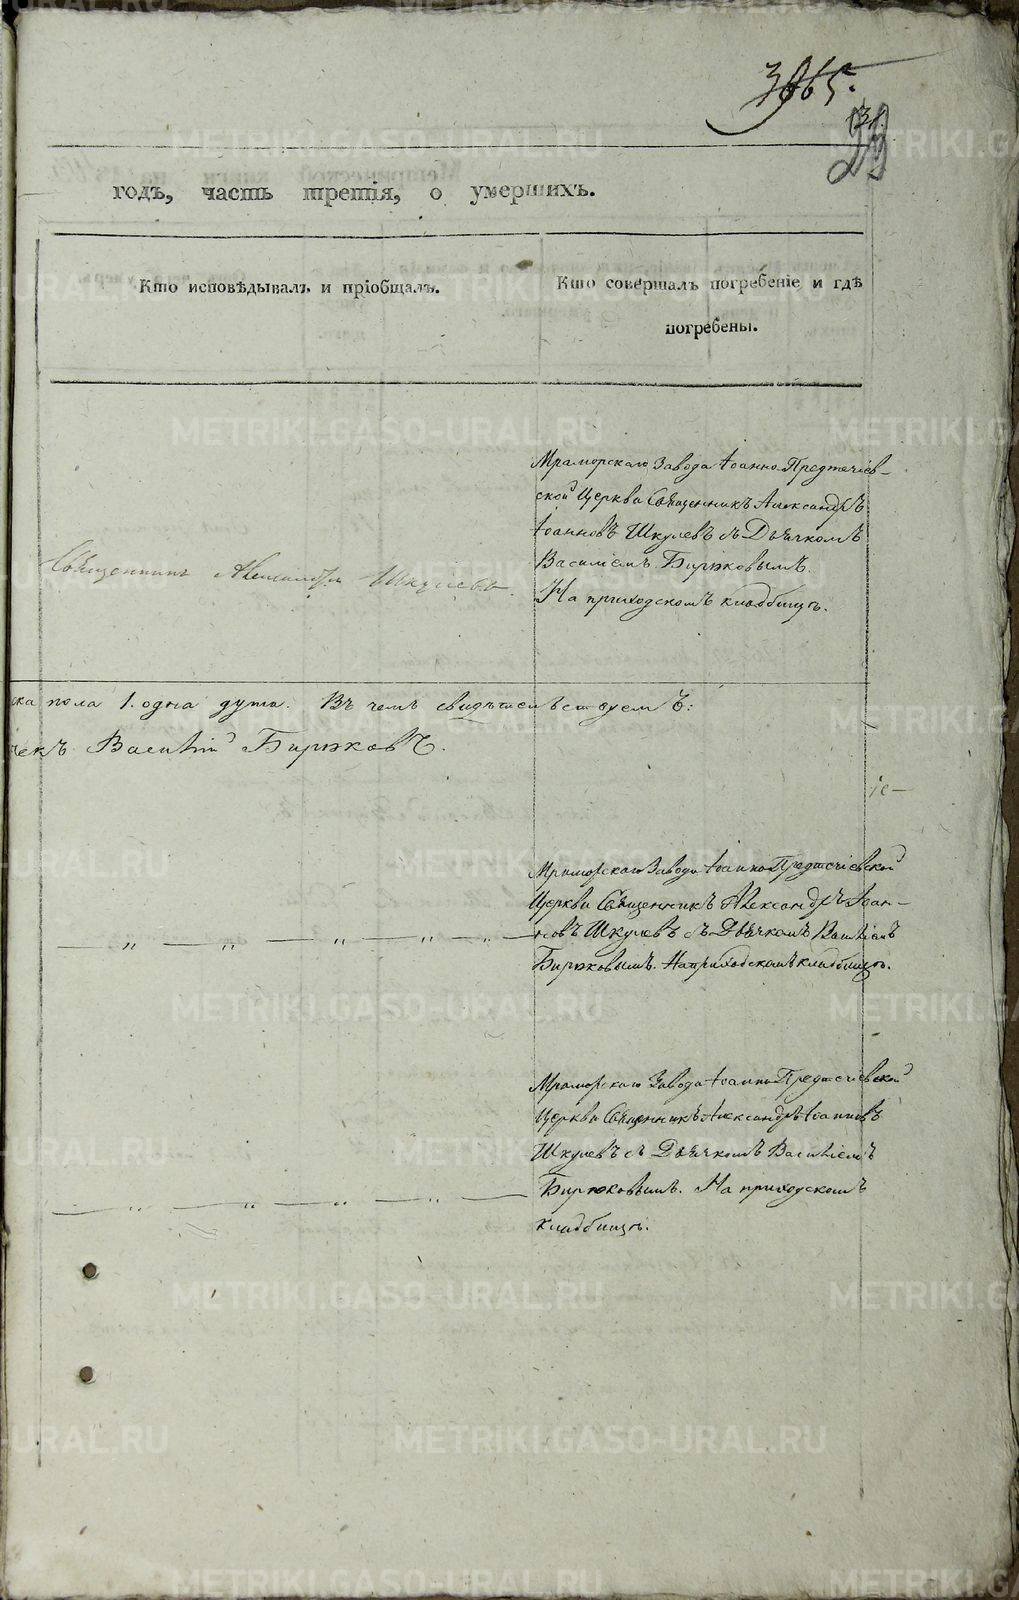 3965.
годъ, часть третія, о умершихъ.
Кто исповѣдывалъ и пріобщалъ.
Кто совершалъ погребеніе и гдѣ
погребены.
Мраморскаго Завода Іоанно Предтечіев-
ской Церкви Священникъ Александръ
Іоанновъ Шкулевъ съ Дьячкомъ
Василіемъ Бирюковымъ.
На приходскомъ кладбищѣ.
Священникъ Александръ Шкулевъ.
ска пола 1. одна душа. Въ чемъ свидѣтельствуемъ:
чекъ Василій Бирюковъ.
Мраморскаго Завода Іоанно Предтечіевской
Церкви Священникъ Александръ Іоан-
новъ Шкулевъ съ Дьячкомъ Василіемъ
Бирюковымъ. На приходскомъ кладбищѣ.
— „ — „ — „ — „ —
Мраморскаго Завода Іоанно Предтечіевской
Церкви Священникъ Александръ Іоанновъ
Шкулевъ съ Дьячкомъ Василіемъ
Бирюковымъ. На приходскомъ
кладбищѣ.
— „ — „ — „ — „ —
METRIKI.GASO-URAL.RU